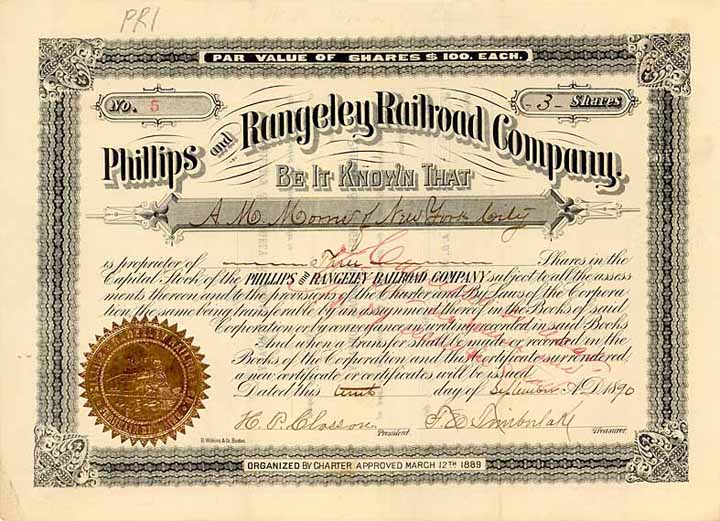 PRI
PAR VALUE OF SHARES $100. EACH.
No. 5
-3- Shares
Phillips and Rangeley Railroad Company.
BE IT KNOWN THAT
A. M. of New York City
is proprietor of Three Shares in the
Capital Stock of the PHILLIPS and RANGELEY RAILROAD COMPANY subject to all the assess
ments thereon and to the provisions of the Charter and By Laws of the Corpora
tion, the same being transferable by an assignment thereof in the Books of said
Corporation or by conveyance in writing recorded in said Books
And when a transfer shall be made or recorded in the
Books of the Corporation and this certificate surrendered,
a new certificate or certificates will be issued.
Dated this day of September A.D. 1890
H. P. Closson President.
F. E. Timberlake Treasurer.
ORGANIZED BY CHARTER APPROVED MARCH 12TH 1889